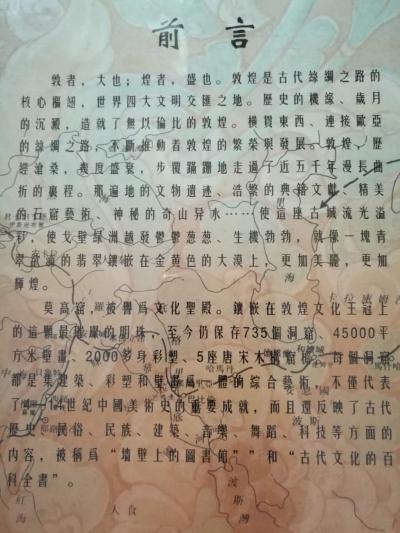 前言
敦者，大也；煌者，盛也。敦煌是古代絲綢之路的
核心樞紐，世界四大文明交匯之地。歷史的機緣、歲月
的沉澱，造就了無以倫比的敦煌。橫貫東西、連接歐亞
的絲綢之路，不斷推動着敦煌的繁榮與發展。敦煌，歷
經滄桑，幾度盛衰，步履蹣跚地走過了近五千年漫長曲
折的裏程。那遍地的文物遺迹、浩繁的典籍文獻、精美
的石窟藝術、神秘的奇山异水……使這座古城流光溢
彩，使戈壁綠洲越發鬱鬱葱葱、生機勃勃，就像一塊青
翠欲滴的翡翠鑲嵌在金黄色的大漠上，更加美麗，更加
輝煌。
莫高窟，被譽爲文化聖殿。鑲嵌在敦煌文化王冠上
的這顆最璀璨的明珠，至今仍保存735個洞窟、45000平
方米壁畫、2000多身彩塑、5座唐宋木構窟檐。每個洞窟
都是集建築、彩塑和壁畫爲一體的綜合藝術，不僅代表
了4—14世紀中國美術史的重要成就，而且還反映了古代
歷史、民俗、民族、建築、音樂、舞蹈、科技等方面的
内容，被稱爲“墻壁上的圖書館”和“古代文化的百
科全書”。
黑海
卡拉
哈馬丹
波斯
紅海
大食
波斯灣